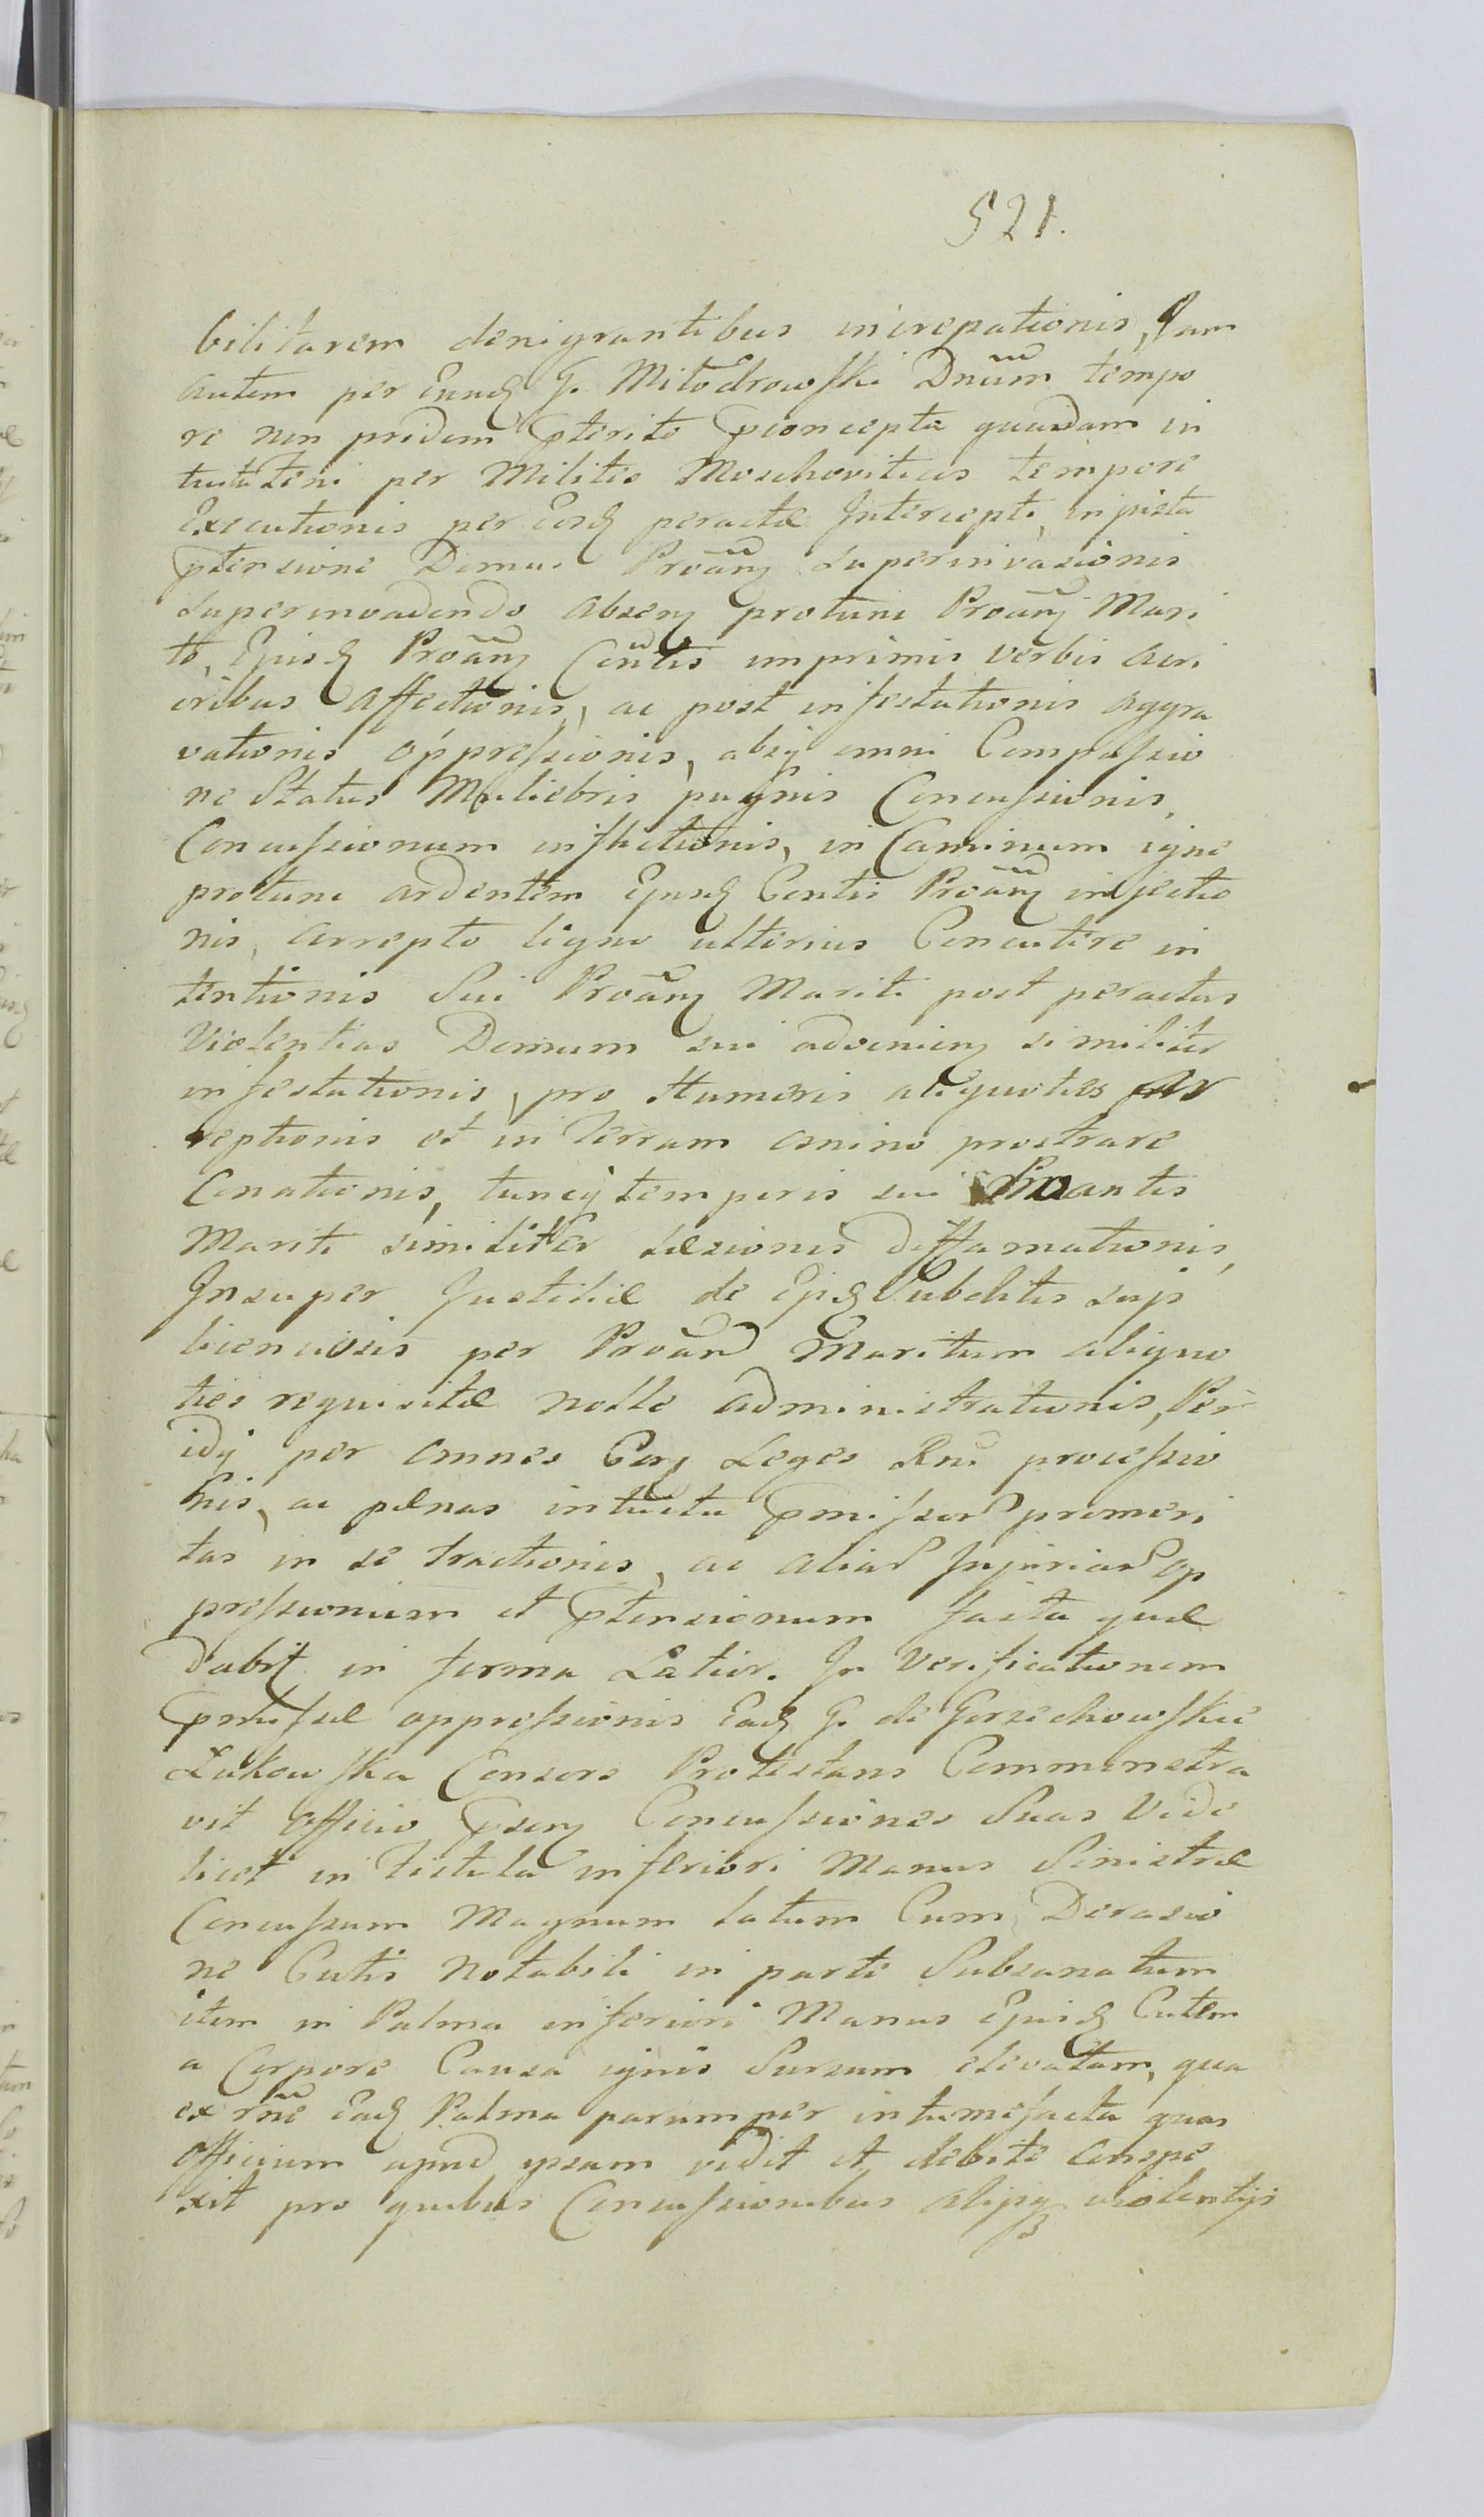 521.
bilitarem denigrantibus increpationis, Jam
autem per Eundḡ G. Miłodrowski Dnūm tempo
re non pridem pterito pconcepta quadam in
per Milites Moschoviticas tempore
Executionis per Eosdḡ peractæ Intercepti, injusta
ptensione Domus Proāñ superinvasionis
superinvadendo absenȝ protunc Proāñ Mari
to, Ejusdḡ Proāñ Coñtis imprimis verbis acri
oribus affectionis, ac post infestationis aggra
vationis oppressionis, absq̄ omni Compassio
ne Status Muliebris pugnis Concussionis,
Concussionum inflictionis, in Caminum igne
protunc ardentem Ejusdḡ Contis Proāñ injectio
nis, arrepto ligno ulterius Concutere in
tentionis Sui Proāñ Mariti post peractas
Violentias Domum sui advenienȝ similiter
infestationis, pro Humeris aliquoties Ar
reptionis et in Terram animo prostrare
Conationis, tuncq̄ temporis sui Proantis
Mariti similiter Læsionis diffamationis,
Insuper Justitiæ de Ejusdḡ Subditis
per Proānd Maritum aliquo
ties requisitæ nolle administrationis, Per
idq̄ per omnes Eas Leges Rni processio
nis, ac pænas intuitu pmissor promeri
tas in se tractionis, ac aliar Injuriar op
pressionum et ptensionum facta quæ
dabit in forma Latior. In Verificationem
pmissæ oppressionis Eadḡ G. de Gorzechowskie
Łukowska Consors Protestans Commonstra
vit Officio psenȝ Concussiones Suas Vide
licet in inferiori Manus Sinistræ
Concussum Magnum latum Cum Derasio
ne Cutis notabili in parte Subsanatum
item in Palma inferiori Manus Ejusdḡ Cutem
a Corpore Causa ignis Sursum elevatam, qua
ex rñe Eadḡ Palma parumper intumefacta quas
Officium apud ipsam vidit et debite Conspe
xit pro quibus Concussionibus alijsq̄ violentijs